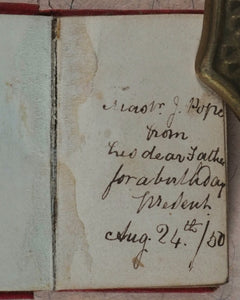 Mastr. J. Pope
from
his dear Father
for a birthday
present.
Aug. 24.th/50